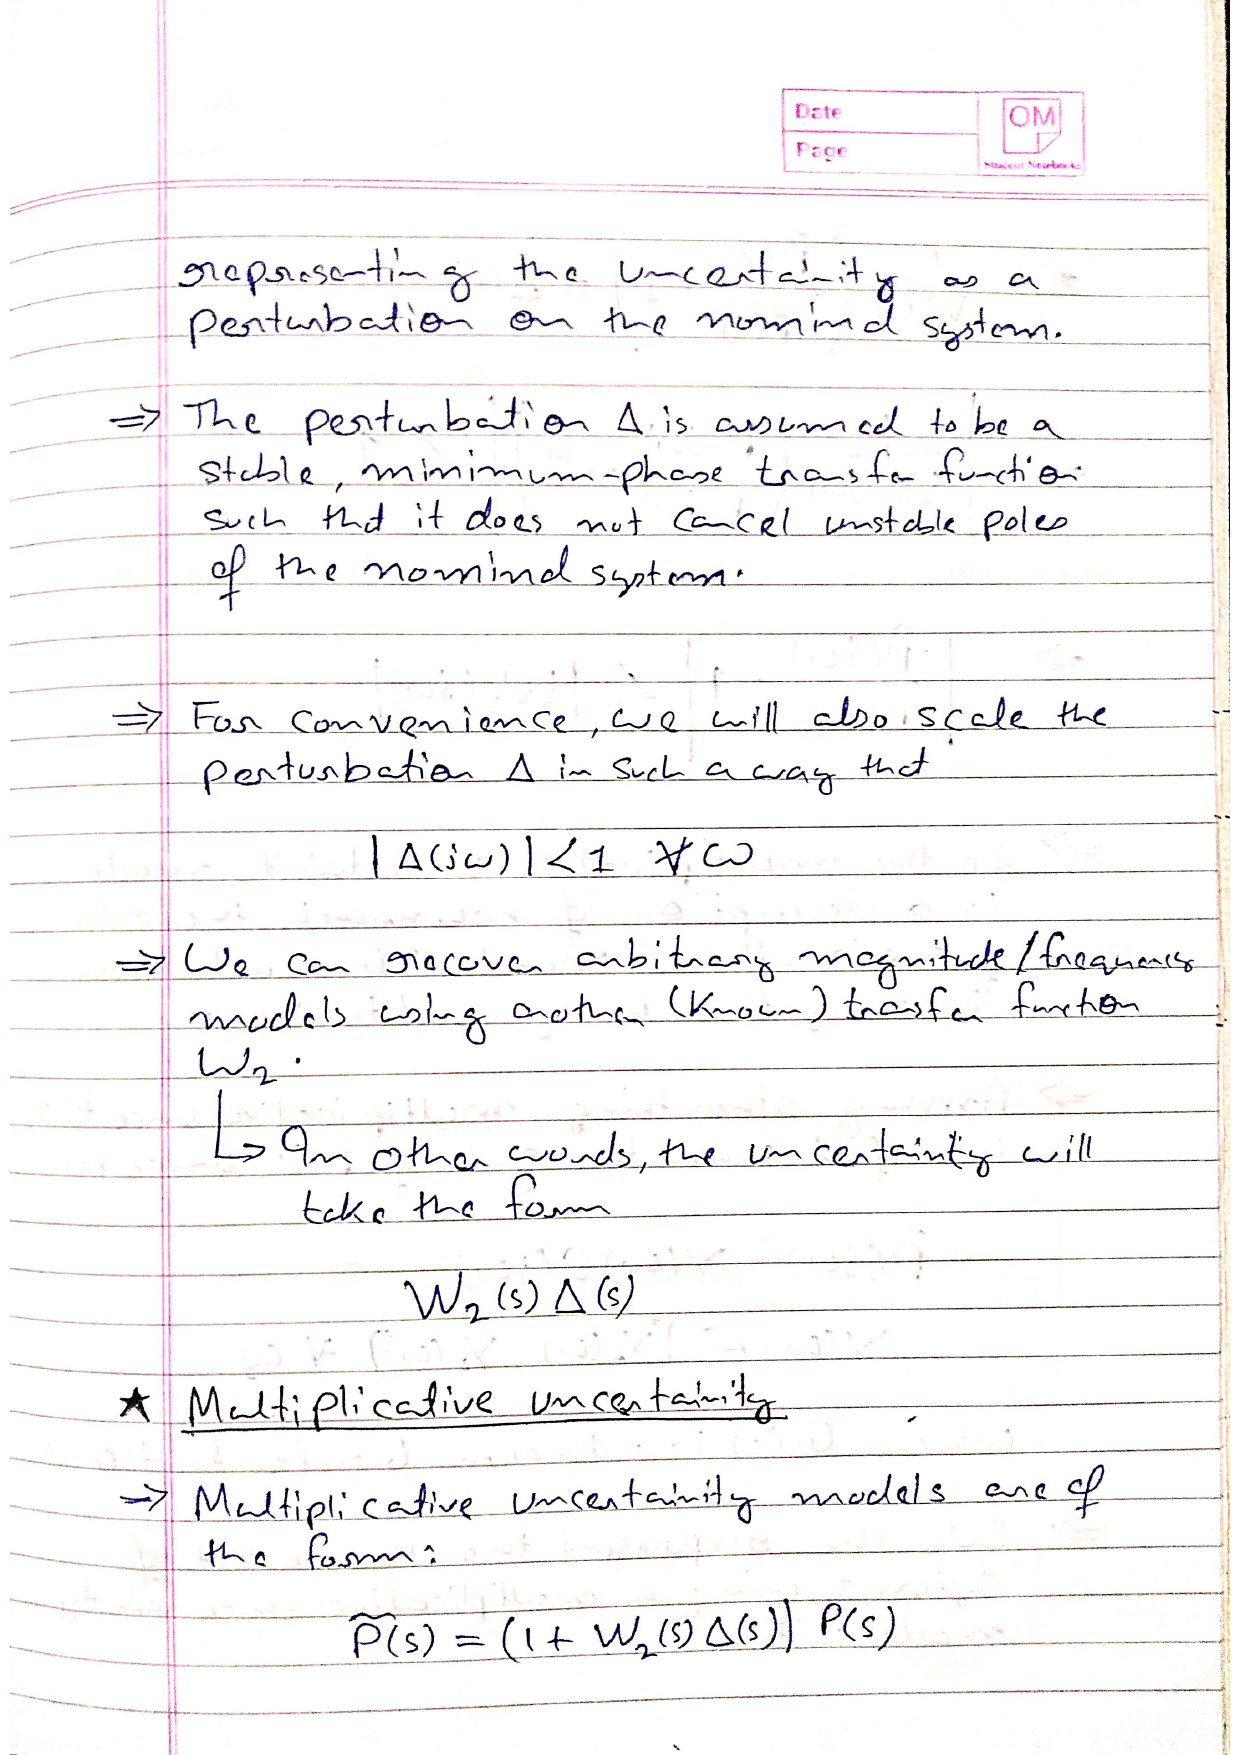 Date
OM
Page
Student Notebooks
representing the uncertainity as a
perturbation on the nominal system.
⇒ The perturbation Δ is assumed to be a
stable, minimum-phase transfer function
such that it does not cancel unstable poles
of the nominal system.
⇒ For convenience, we will also scale the
perturbation Δ in such a way that
|Δ(jω)| < 1 ∀ ω
⇒ We can recover arbitrary magnitude/frequency
models using another (known) transfer function
W₂.
↳ In other words, the uncertainty will
take the form
W₂(s) Δ(s)
★ Multiplicative uncertainity
→ Multiplicative uncertainity models are of
the form:
P̃(s) = (1 + W₂(s) Δ(s)) P(s)